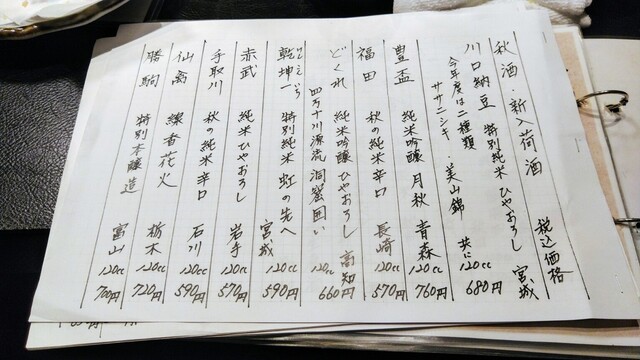 秋酒・新入荷酒 税込価格
川口納豆 特別純米 ひやおろし 宮城
今年度は二種類
ササニシキ・美山錦 共に 120cc 680円
豊盃 純米吟醸 月秋 青森 120cc 760円
福田 秋の純米辛口 長崎 120cc 570円
どくれ 純米吟醸 ひやおろし 高知
四万十川源流 洞窟囲い 120cc 660円
けんこんいち
乾坤一 特別純米 虹の先へ 宮城 120cc 590円
赤武 純米 ひやおろし 岩手 120cc 570円
手取川 秋の純米辛口 石川 120cc 590円
仙禽 線香花火 栃木 120cc 720円
勝駒 特別本醸造 富山 120cc 700円